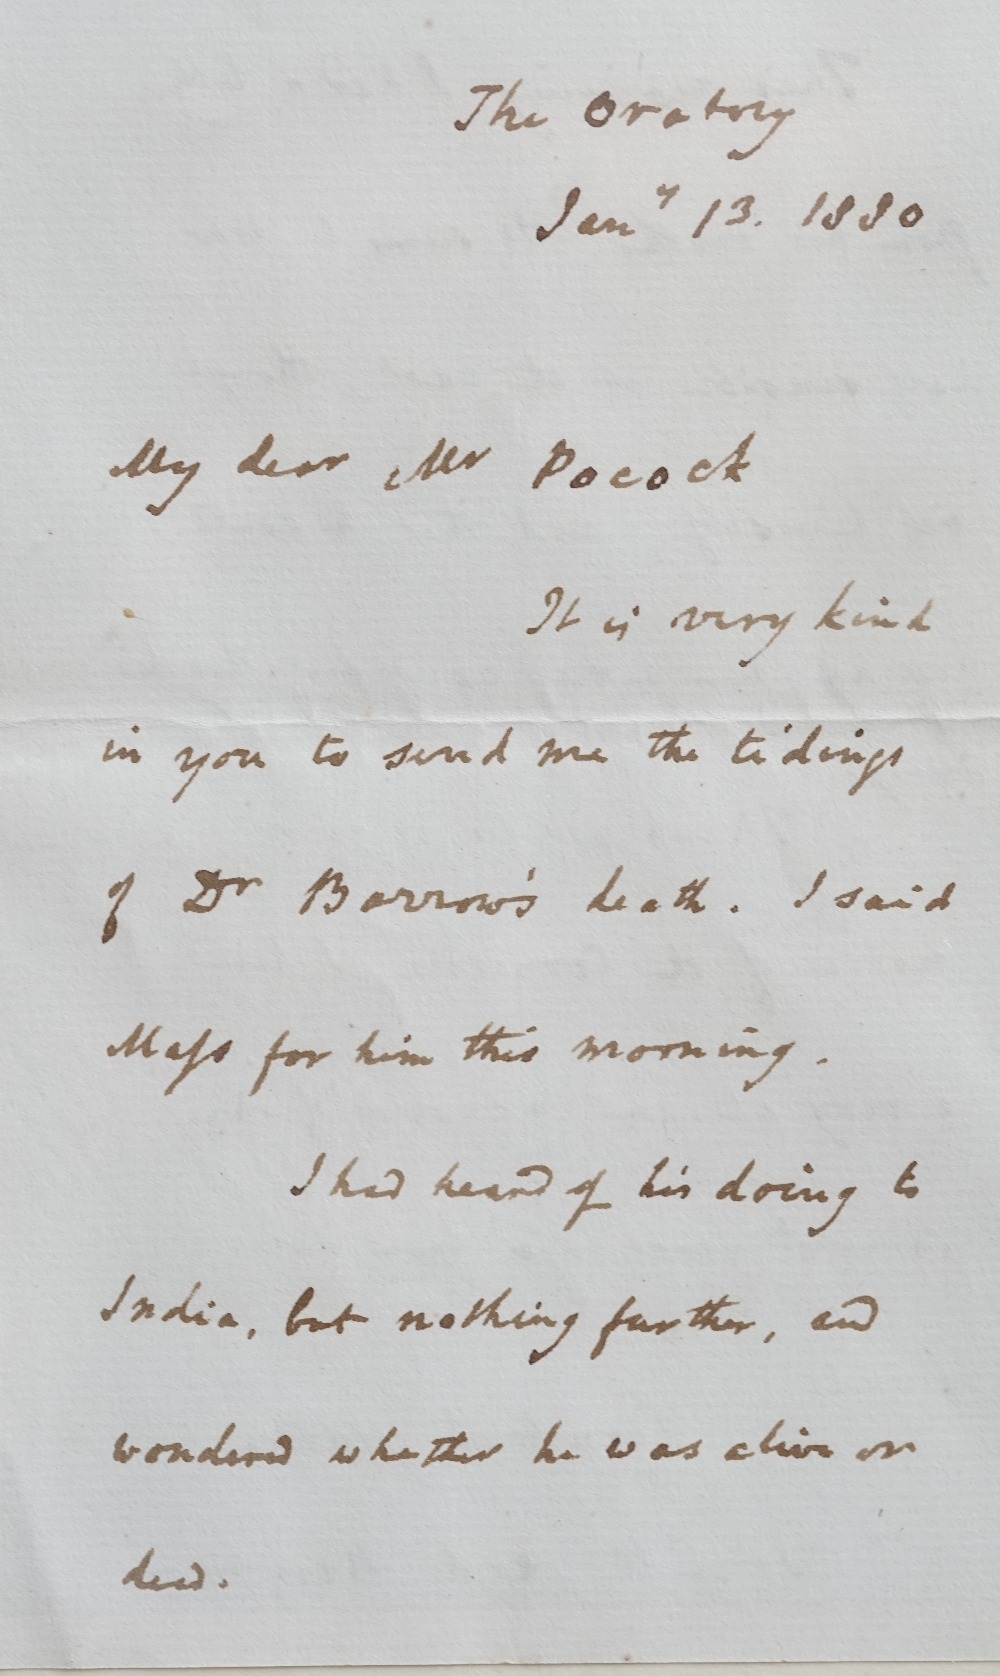 The Oratory
Jany 13. 1880
My dear Mr Pocock
It is very kind
in you to send me the tidings
of Dr Barrow's death. I said
Mass for him this morning.
I had heard of his doing to
India, but nothing further, and
wondered whether he was alive or
dead.